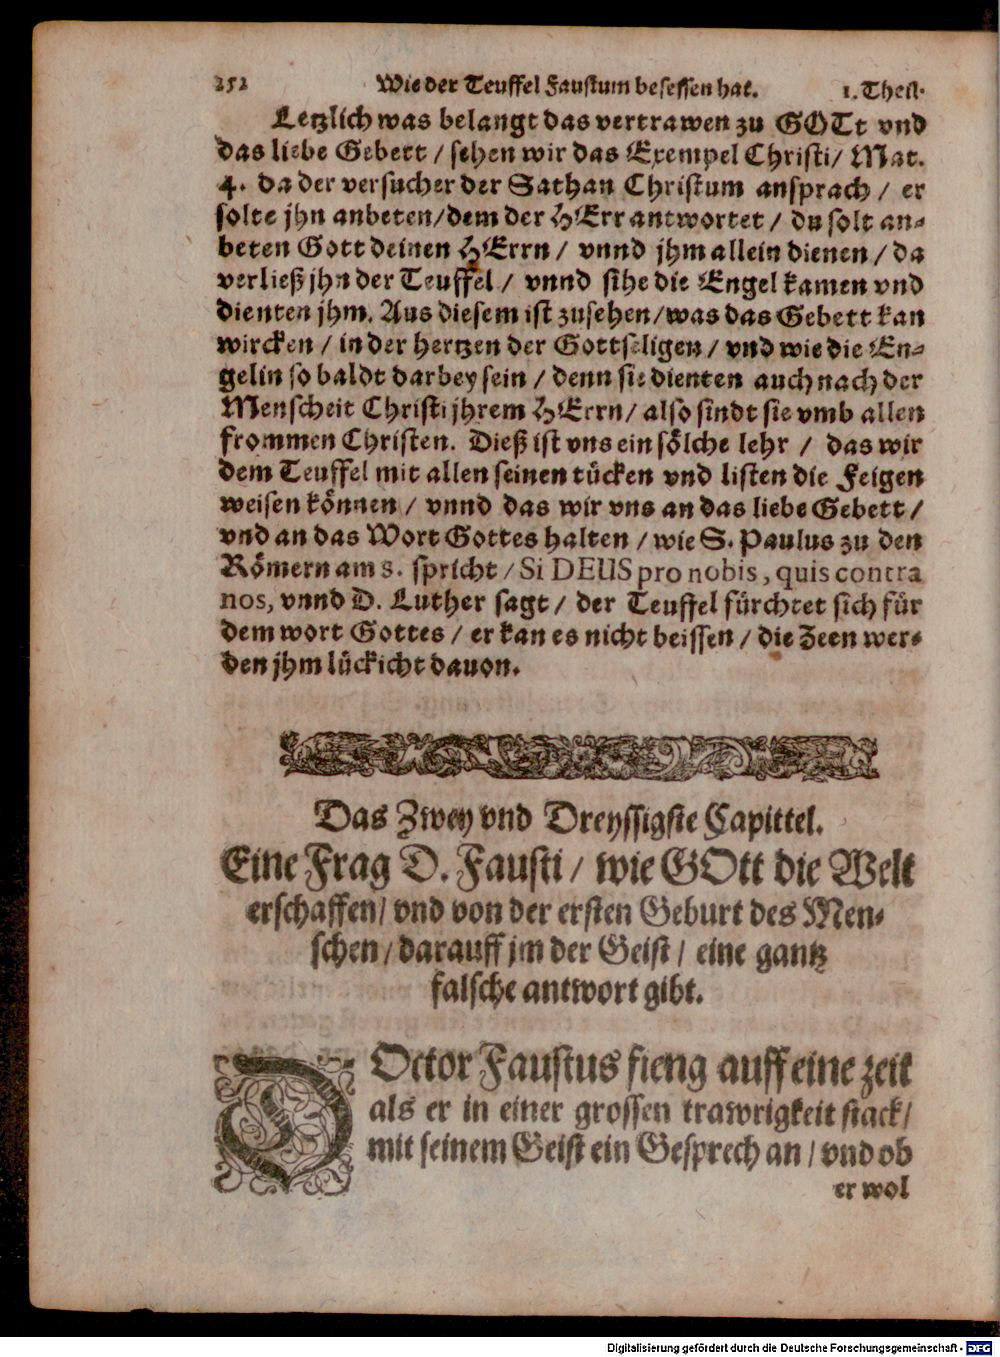 252 Wie der Teuffel Faustum besessen hat. 1. Theil.
Letzlich was belangt das vertrawen zu GOTt vnd
das liebe Gebett / sehen wir das Exempel Christi / Mat.
4. da der versucher der Sathan Christum ansprach / er
solte jhn anbeten / dem der HErr antwortet / du solt an-
beten Gott deinen HErrn / vnnd jhm allein dienen / da
verließ jhn der Teuffel / vnnd sihe die Engel kamen vnd
dienten jhm. Aus diesem ist zusehen / was das Gebett kan
wircken / in der hertzen der Gottseligen / vnd wie die En-
gelin so baldt darbey sein / denn sie dienten auch nach der
Menscheit Christi jhrem HErrn / also sindt sie vmb allen
frommen Christen. Dieß ist vns ein sölche lehr / das wir
dem Teuffel mit allen seinen tücken vnd listen die Feigen
weisen können / vnnd das wir vns an das liebe Gebett /
vnd an das Wort Gottes halten / wie S. Paulus zu den
Römern am 8. spricht / Si DEUS pro nobis, quis contra
nos, vnnd D. Luther sagt / der Teuffel fürchtet sich für
dem wort Gottes / er kan es nicht beissen / die Zeen wer-
den jhm lückicht dauon.
Das Zwey vnd Dreyssigste Capittel.
Eine Frag D. Fausti / wie GOtt die Welt
erschaffen / vnd von der ersten Geburt des Men-
schen / darauff jm der Geist / eine gantz
falsche antwort gibt.
DOctor Faustus fieng auff eine zeit
als er in einer grossen trawrigkeit stack /
mit seinem Geist ein Gesprech an / vnd ob
er wol
Digitalisierung gefördert durch die Deutsche Forschungsgemeinschaft - DFG